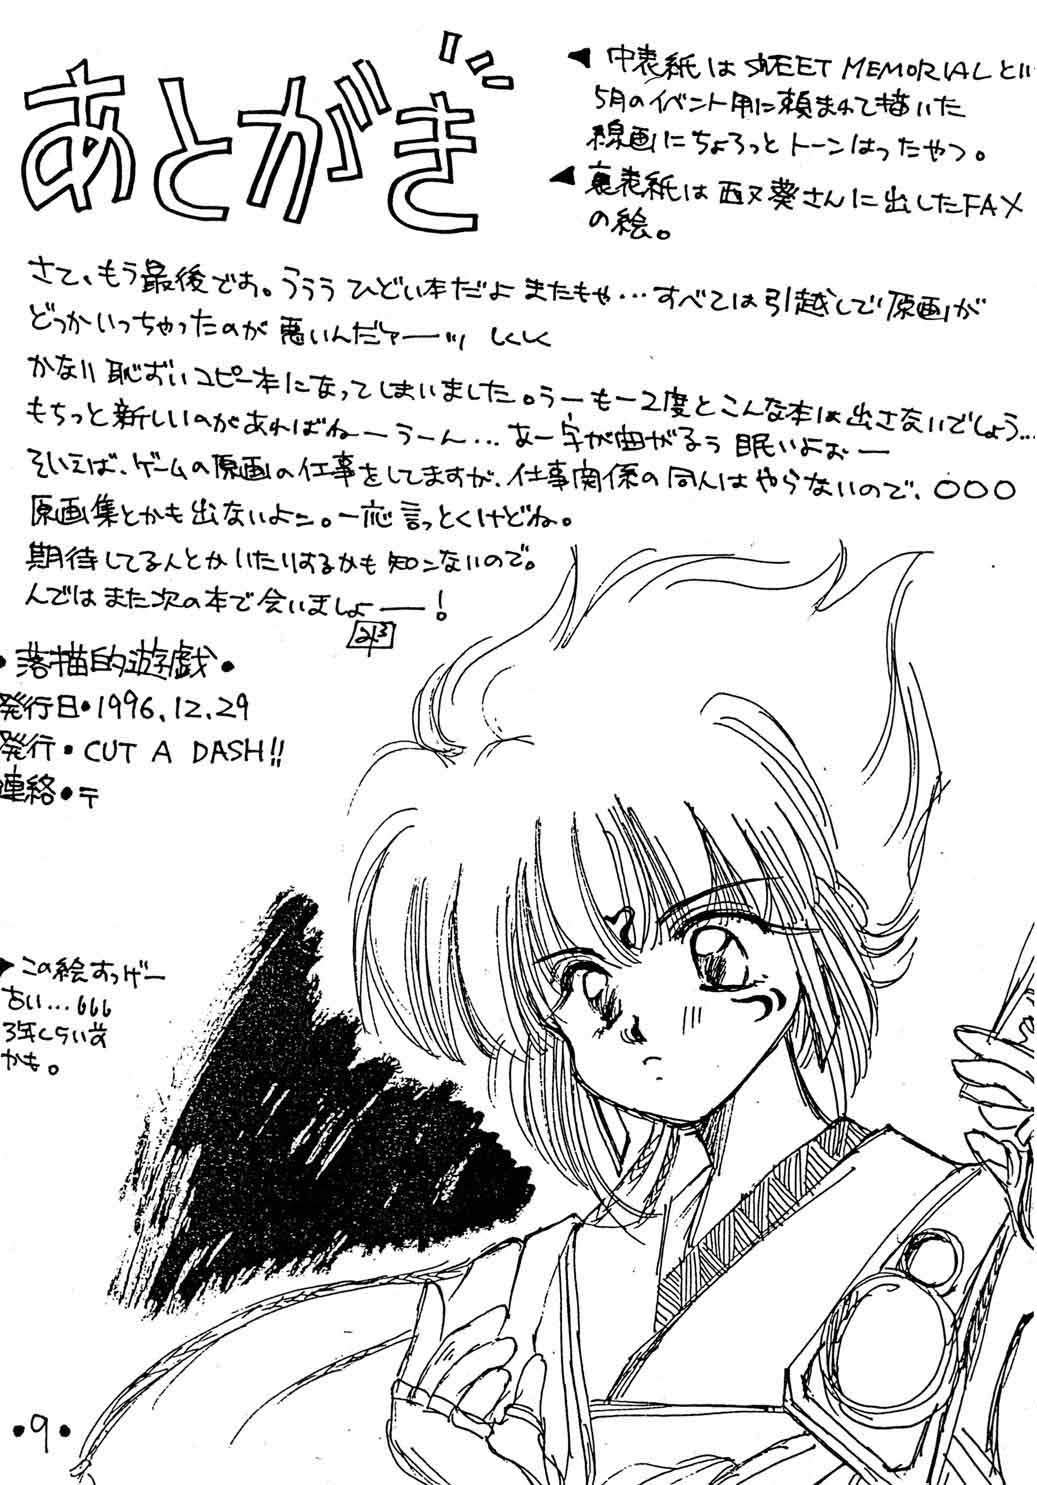 あとがき
◀中表紙はSWEET MEMORIALとい
5月のイベント用に頼まれて描いた
線画にちょろっとトーンはったやつ。
◀裏表紙は西又葵さんに出したFAX
の絵。
さて、もう最後です。ううう ひどい本だよ またもや…すべては引越しで原画が
どっかいっちゃったのが悪いんだァーッ しくしく
かなり恥ずいコピー本になってしまいました。うーもー2度とこんな本は出さないでしょう…
もちっと新しいのがあればねーうーん…あー字が曲がるぅ 眠いよぉー
そいえば、ゲームの原画の仕事をしてますが、仕事関係の同人はやらないので、○○○
原画集とかも出ないよン。一応言っとくけどね。
期待してるんとかいたりするかも知ンないので。
んではまた次の本で会いましょーー!
•落描的遊戯•
発行日•1996.12.29
発行•CUT A DASH!!
連絡•〒
▶この絵すっげー
古い…666
3年くらい前
かも。
•9•